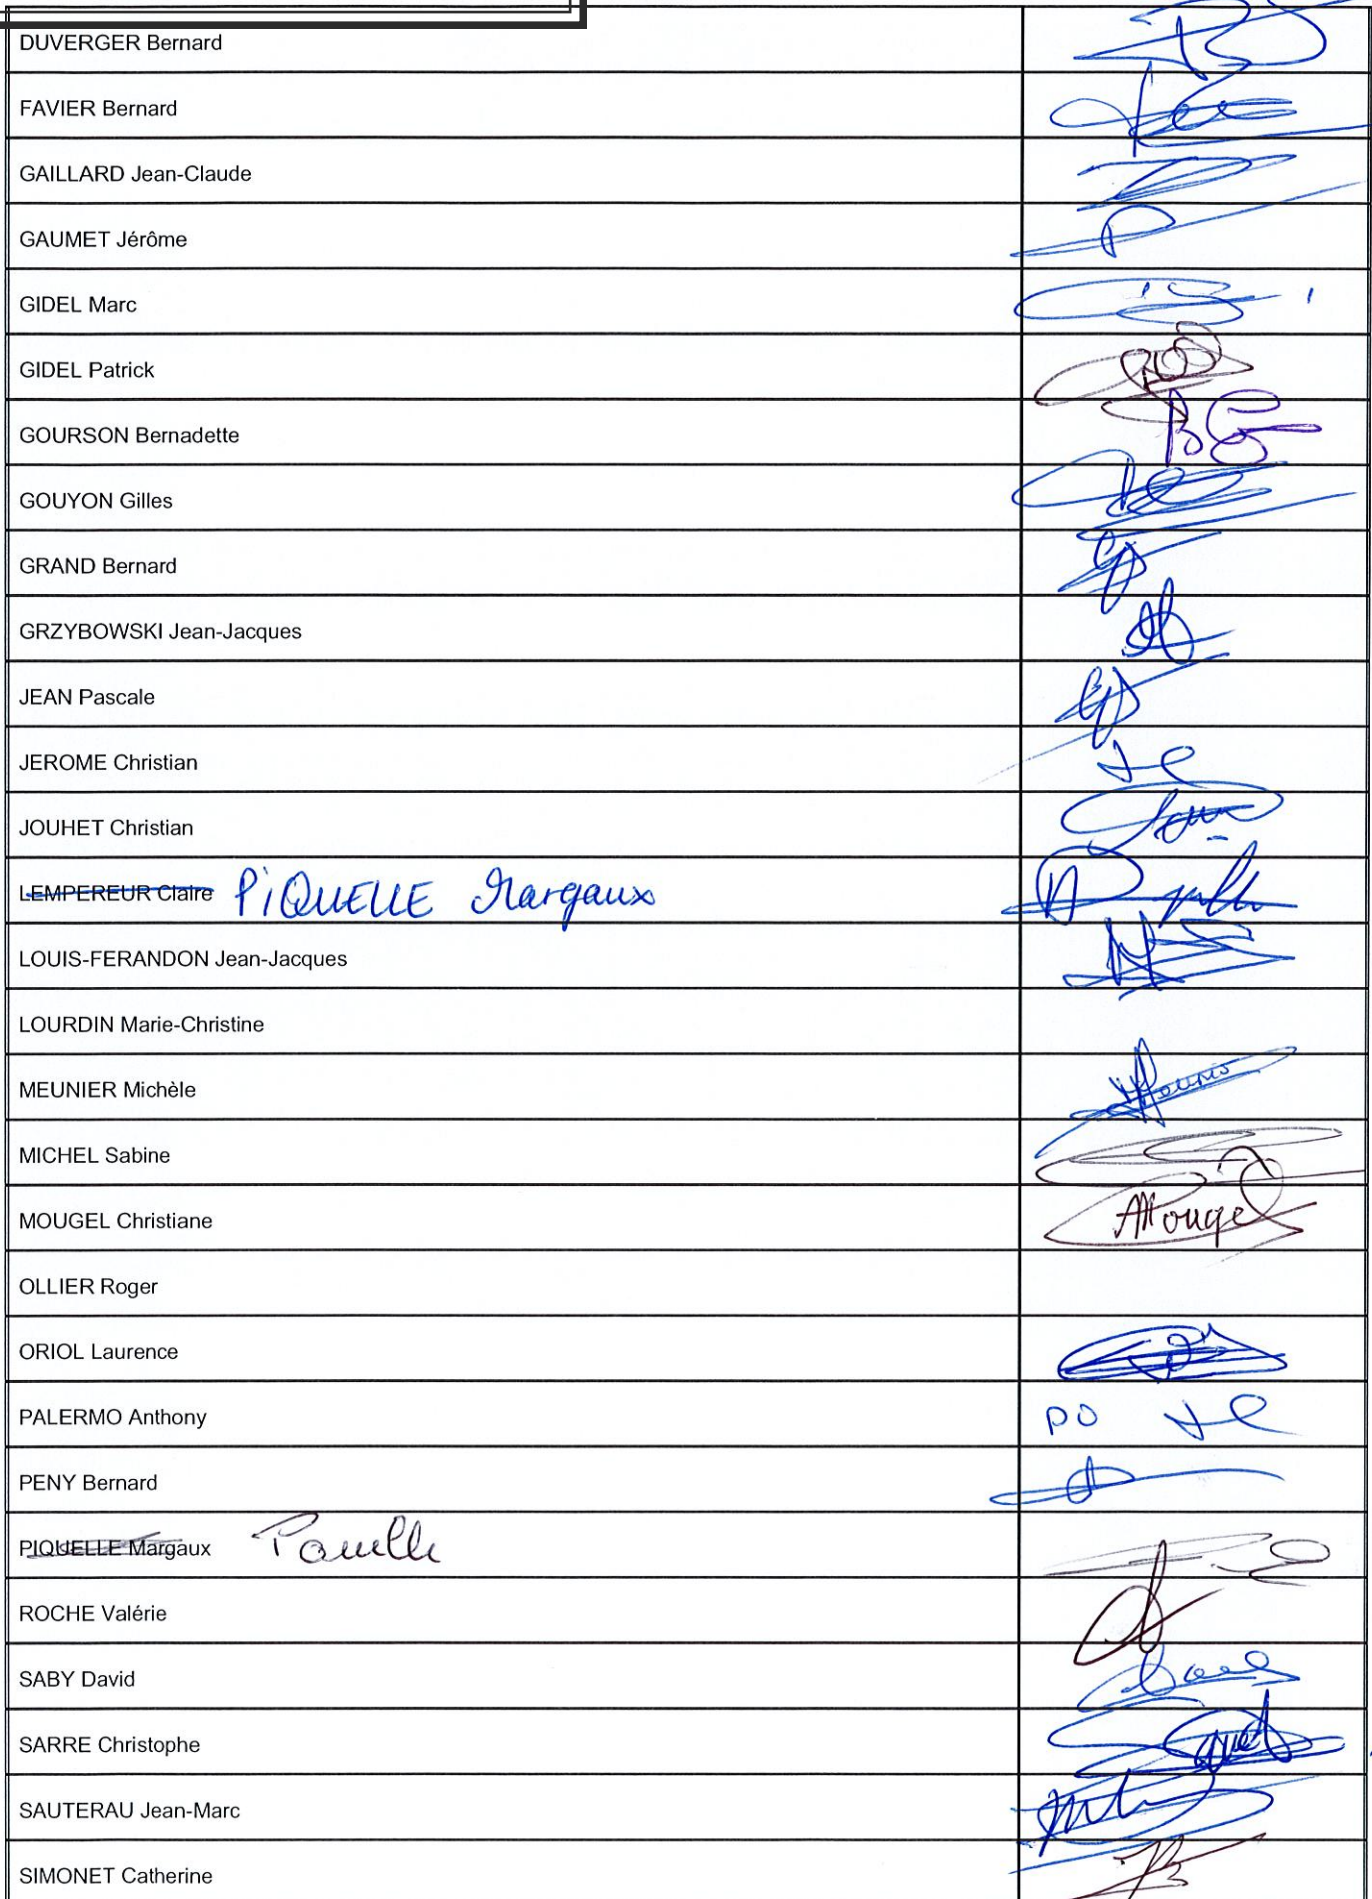 DUVERGER Bernard
FAVIER Bernard
GAILLARD Jean-Claude
GAUMET Jérôme
GIDEL Marc
GIDEL Patrick
GOURSON Bernadette
GOUYON Gilles
GRAND Bernard
GRZYBOWSKI Jean-Jacques
JEAN Pascale
JEROME Christian
JOUHET Christian
LEMPEREUR Claire PiQUELLE Margaux
LOUIS-FERANDON Jean-Jacques
LOURDIN Marie-Christine
MEUNIER Michèle
MICHEL Sabine
MOUGEL Christiane
OLLIER Roger
ORIOL Laurence
PALERMO Anthony PO
PENY Bernard
PIQUELLE Margaux
ROCHE Valérie
SABY David
SARRE Christophe
SAUTERAU Jean-Marc
SIMONET Catherine